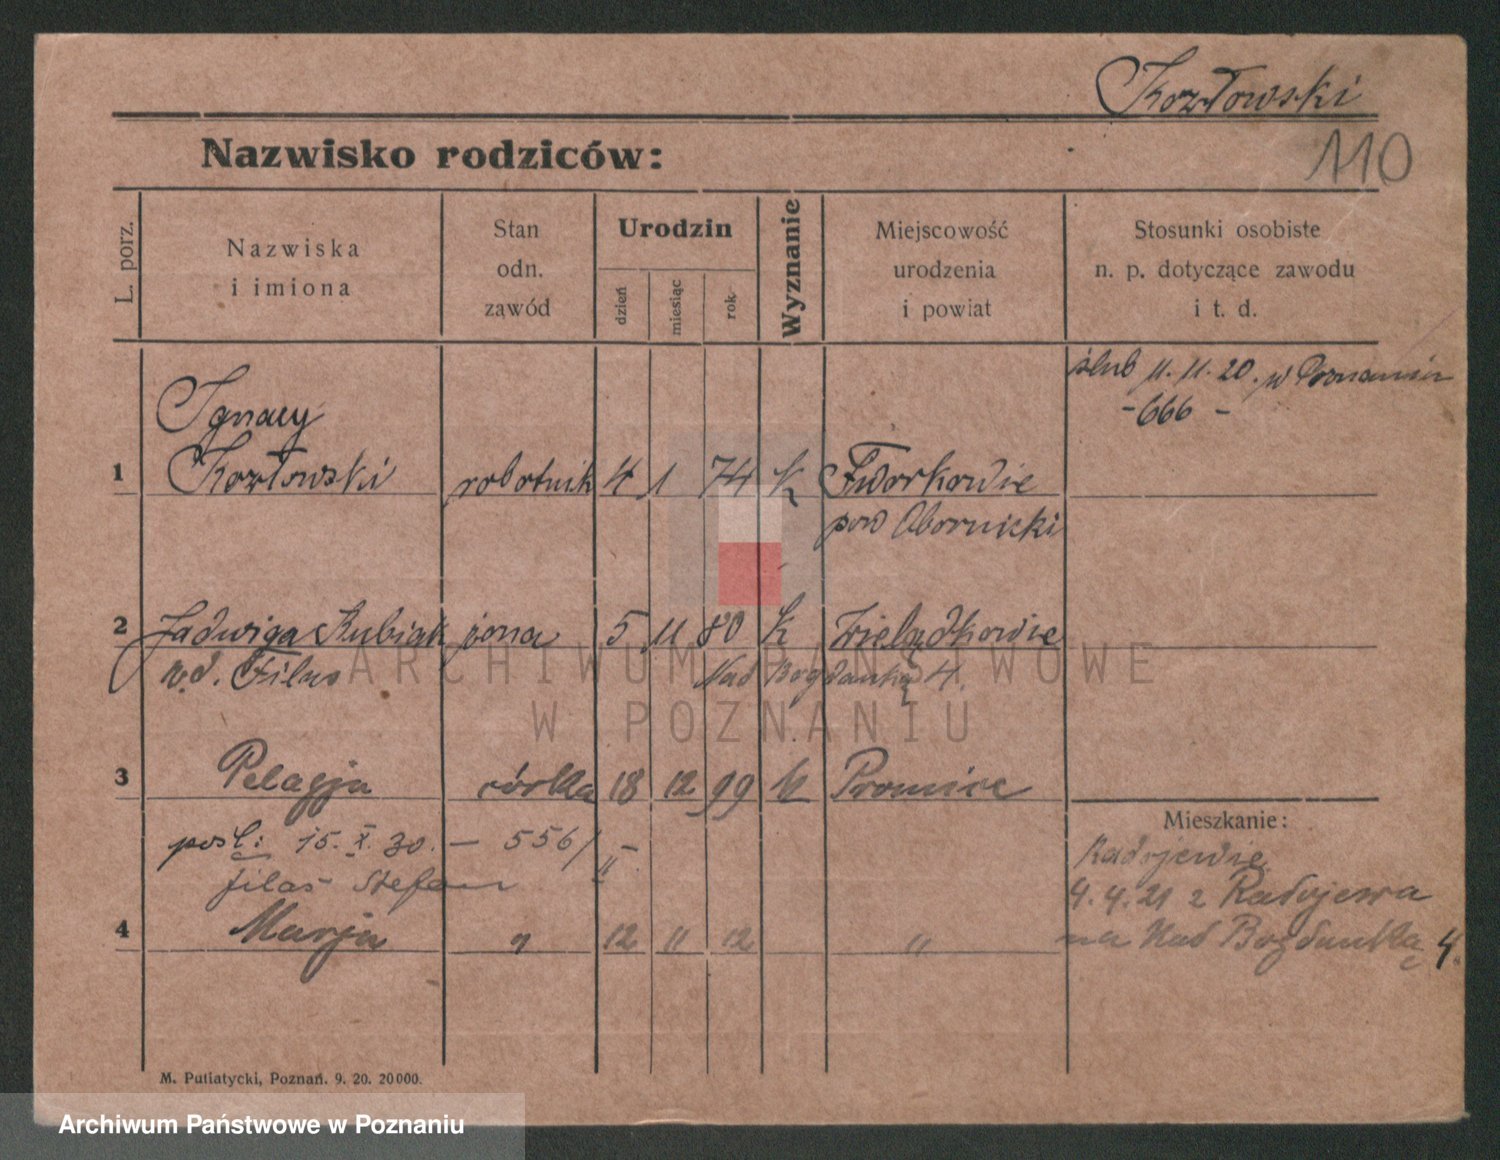 Kozłowski
110
Nazwisko rodziców:
L. porz.
Nazwiska
i imiona
Stan
odn.
zawód
Urodzin
dzień
miesiąc
rok
Wyznanie
Miejscowość
urodzenia
i powiat
Stosunki osobiste
n. p. dotyczące zawodu
i t. d.
ślub 11. 11. 20. w Poznaniu
- 666 -
Ignacy
1 Kozłowski robotnik 4 1 74 k
pow Obornicki
2 Jadwiga Kubiak żona 5 11 80 k
Nad Bogdanką 4.
3 Pelagja córka 18 12 99 k Promnice
pośl: 15. X. 30. - 556/
Stefan
4 Marja " 12 11 12 "
Mieszkanie:
Radojewie
4. 4. 21 z Radojewa
na Nad Bogdanką 4.
M. Putiatycki, Poznań. 9. 20. 20000.
ARCHIWUM PAŃSTWOWE
W POZNANIU
Archiwum Państwowe w Poznaniu